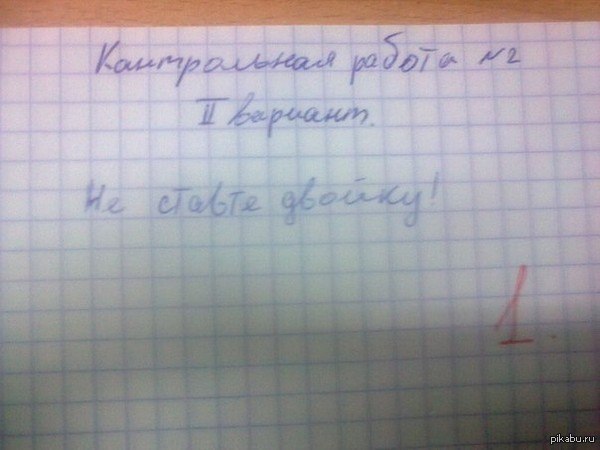 Контрольная работа №2
II вариант.
Не ставте двойку!
1.
pikabu.ru